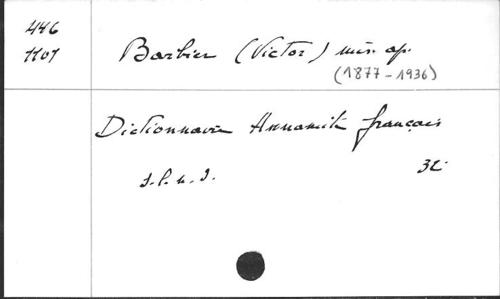 446
1101
Barbier (Victor) mis. ap.
(1877-1936)
Dictionnaire Annamite français
s.l.n.d.
32